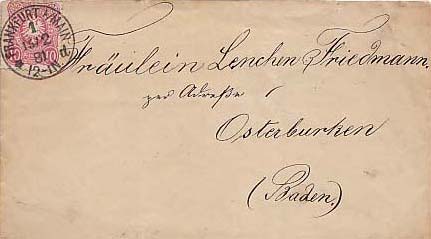 FRANKFURT A/MAIN
1
12-1N
10
Fräulein Lenchen Friedmann.
per Adreße
Osterburken
(Baden.)